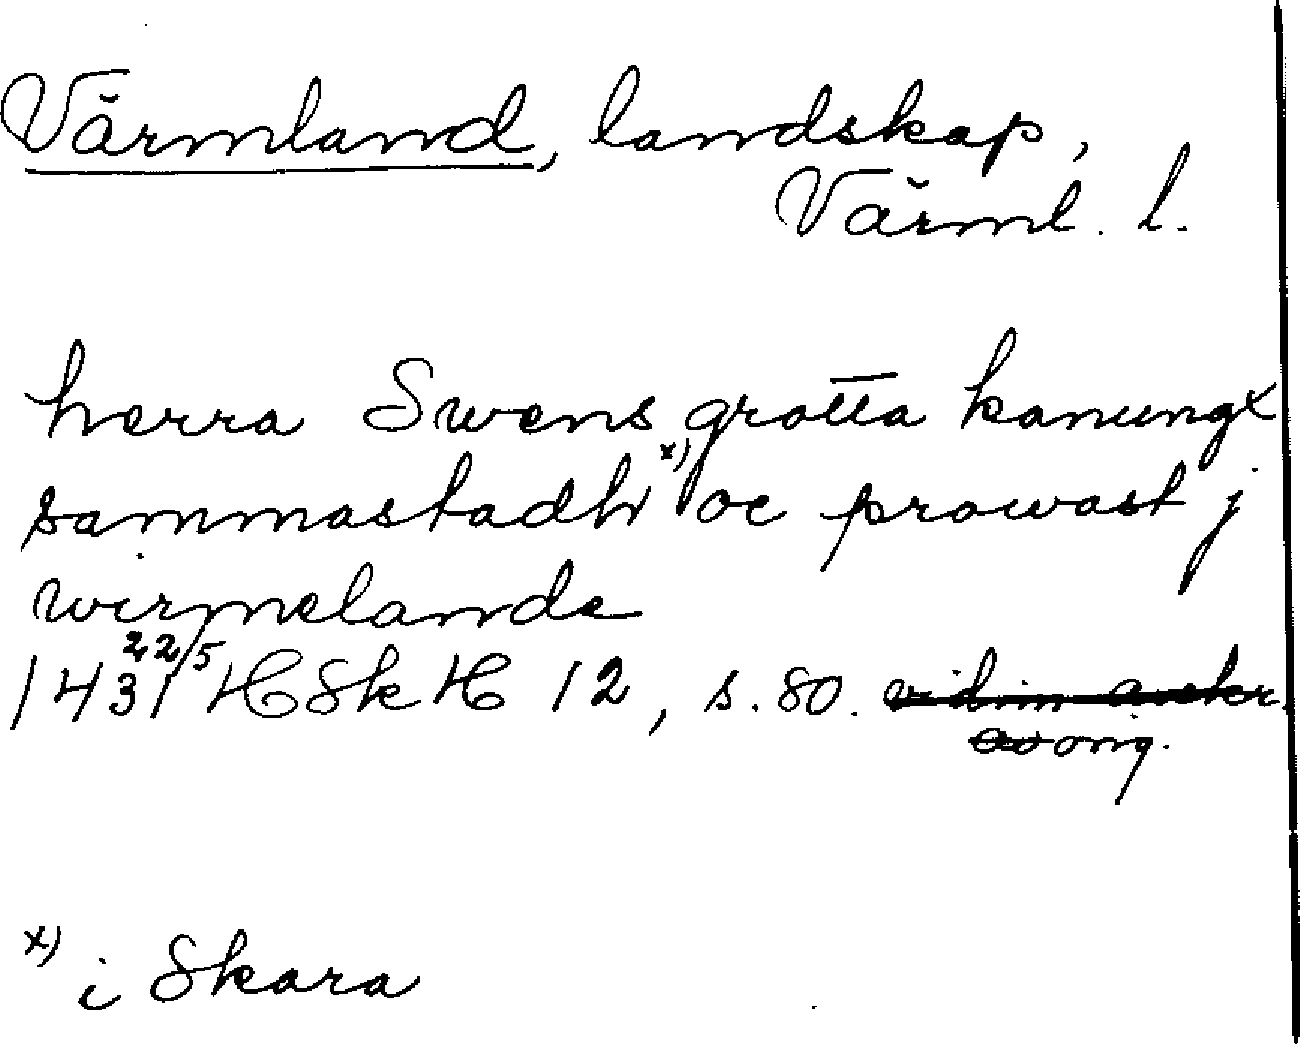 Värmland, landskap,
Värml. l.
herra Swens grotta kanungx
sammastadh x) oc prowast j
wirmelande
1431 22/5 HSkH 12, s. 80. vidim avskr.
av orig.
x) i Skara